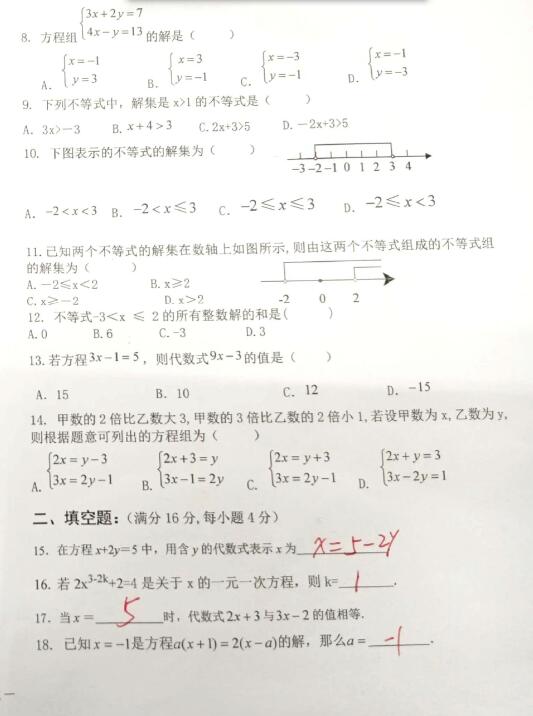 8. 方程组{3x+2y=7 4x-y=13 的解是( )
A. {x=-1 y=3 B. {x=3 y=-1 C. {x=-3 y=-1 D. {x=-1 y=-3
9. 下列不等式中，解集是 x>1 的不等式是( )
A. 3x>-3 B. x+4>3 C. 2x+3>5 D. -2x+3>5
10. 下图表示的不等式的解集为( )
-3 -2 -1 0 1 2 3 4
A. -2<x<3 B. -2<x≤3 C. -2≤x≤3 D. -2≤x<3
11. 已知两个不等式的解集在数轴上如图所示，则由这两个不等式组成的不等式组
的解集为( )
A. -2≤x<2 B. x≥2
C. x≥-2 D. x>2
-2 0 2
12. 不等式-3<x ≤ 2 的所有整数解的和是( )
A. 0 B. 6 C. -3 D. 3
13. 若方程3x-1=5，则代数式9x-3的值是( )
A. 15 B. 10 C. 12 D. -15
14. 甲数的 2 倍比乙数大 3, 甲数的 3 倍比乙数的 2 倍小 1, 若设甲数为 x, 乙数为 y,
则根据题意可列出的方程组为( )
A. {2x=y-3 3x=2y-1 B. {2x+3=y 3x-1=2y C. {2x=y+3 3x=2y-1 D. {2x+y=3 3x-2y=1
二、填空题：(满分 16 分, 每小题 4 分)
15. 在方程 x+2y=5 中，用含 y 的代数式表示 x 为 x=5-2y
16. 若 2x^{3-2k}+2=4 是关于 x 的一元一次方程，则 k= 1 .
17. 当 x = 5 时，代数式 2x+3 与 3x-2 的值相等.
18. 已知 x = -1是方程a(x+1)=2(x-a)的解，那么a = -1 .